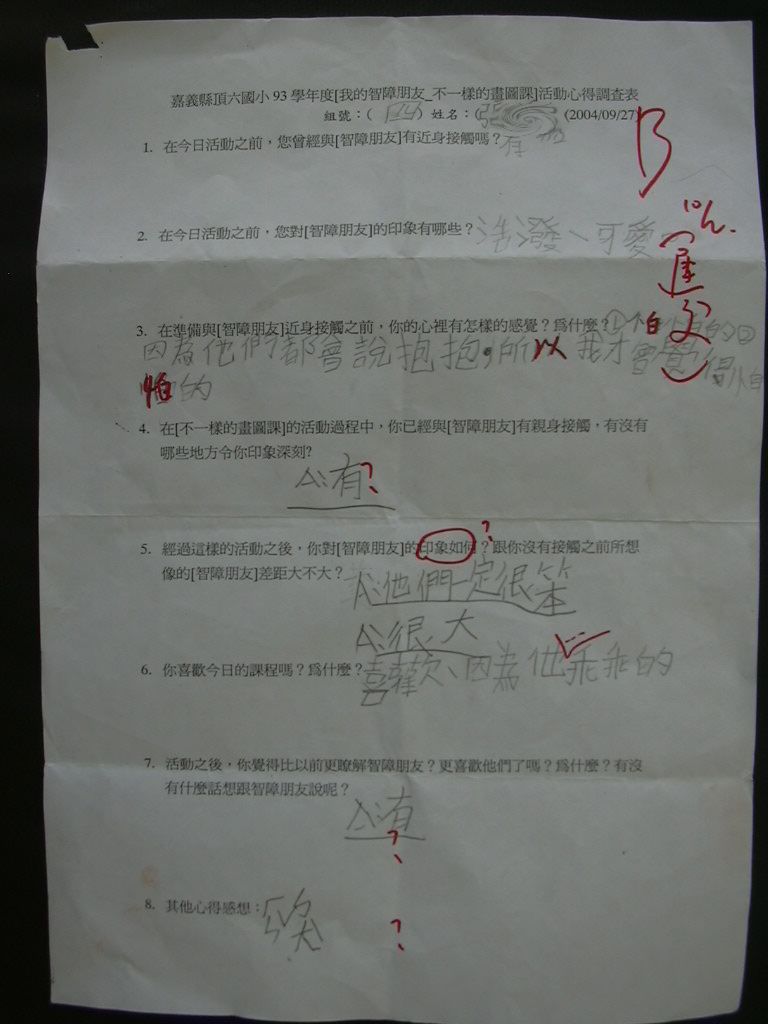 嘉義縣頂六國小93學年度[我的智障朋友_不一樣的畫圖課]活動心得調查表
組號：( 四 ) 姓名：(張 (2004/09/27)
B
1. 在今日活動之前，您曾經與[智障朋友]有近身接觸嗎？有
10/4.
2. 在今日活動之前，您對[智障朋友]的印象有哪些？活潑、可愛
(遲交)
3. 在準備與[智障朋友]近身接觸之前，你的心裡有怎樣的感覺？為什麼？
因為他們都會說抱抱，所以我才會覺得
怕的
4. 在[不一樣的畫圖課]的活動過程中，你已經與[智障朋友]有親身接觸，有沒有
哪些地方令你印象深刻?
A:有?
5. 經過這樣的活動之後，你對[智障朋友]的印象如何？跟你沒有接觸之前所想
?
像的[智障朋友]差距大不大？
A:他們一定很笨
A:很大
6. 你喜歡今日的課程嗎？為什麼？喜歡、因為他乖乖的
7. 活動之後，你覺得比以前更瞭解智障朋友？更喜歡他們了嗎？為什麼？有沒
有什麼話想跟智障朋友說呢？
A:有
?
8. 其他心得感想：
?